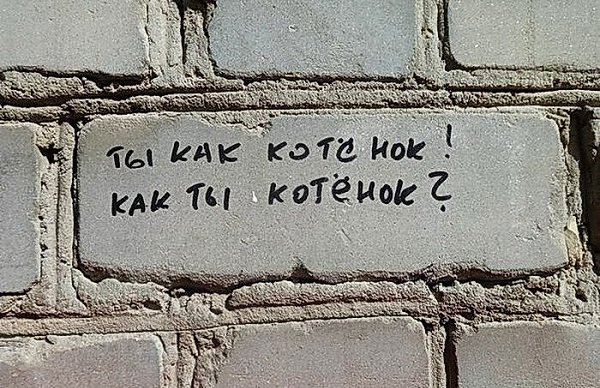 ты как котёнок!
как ты котёнок?